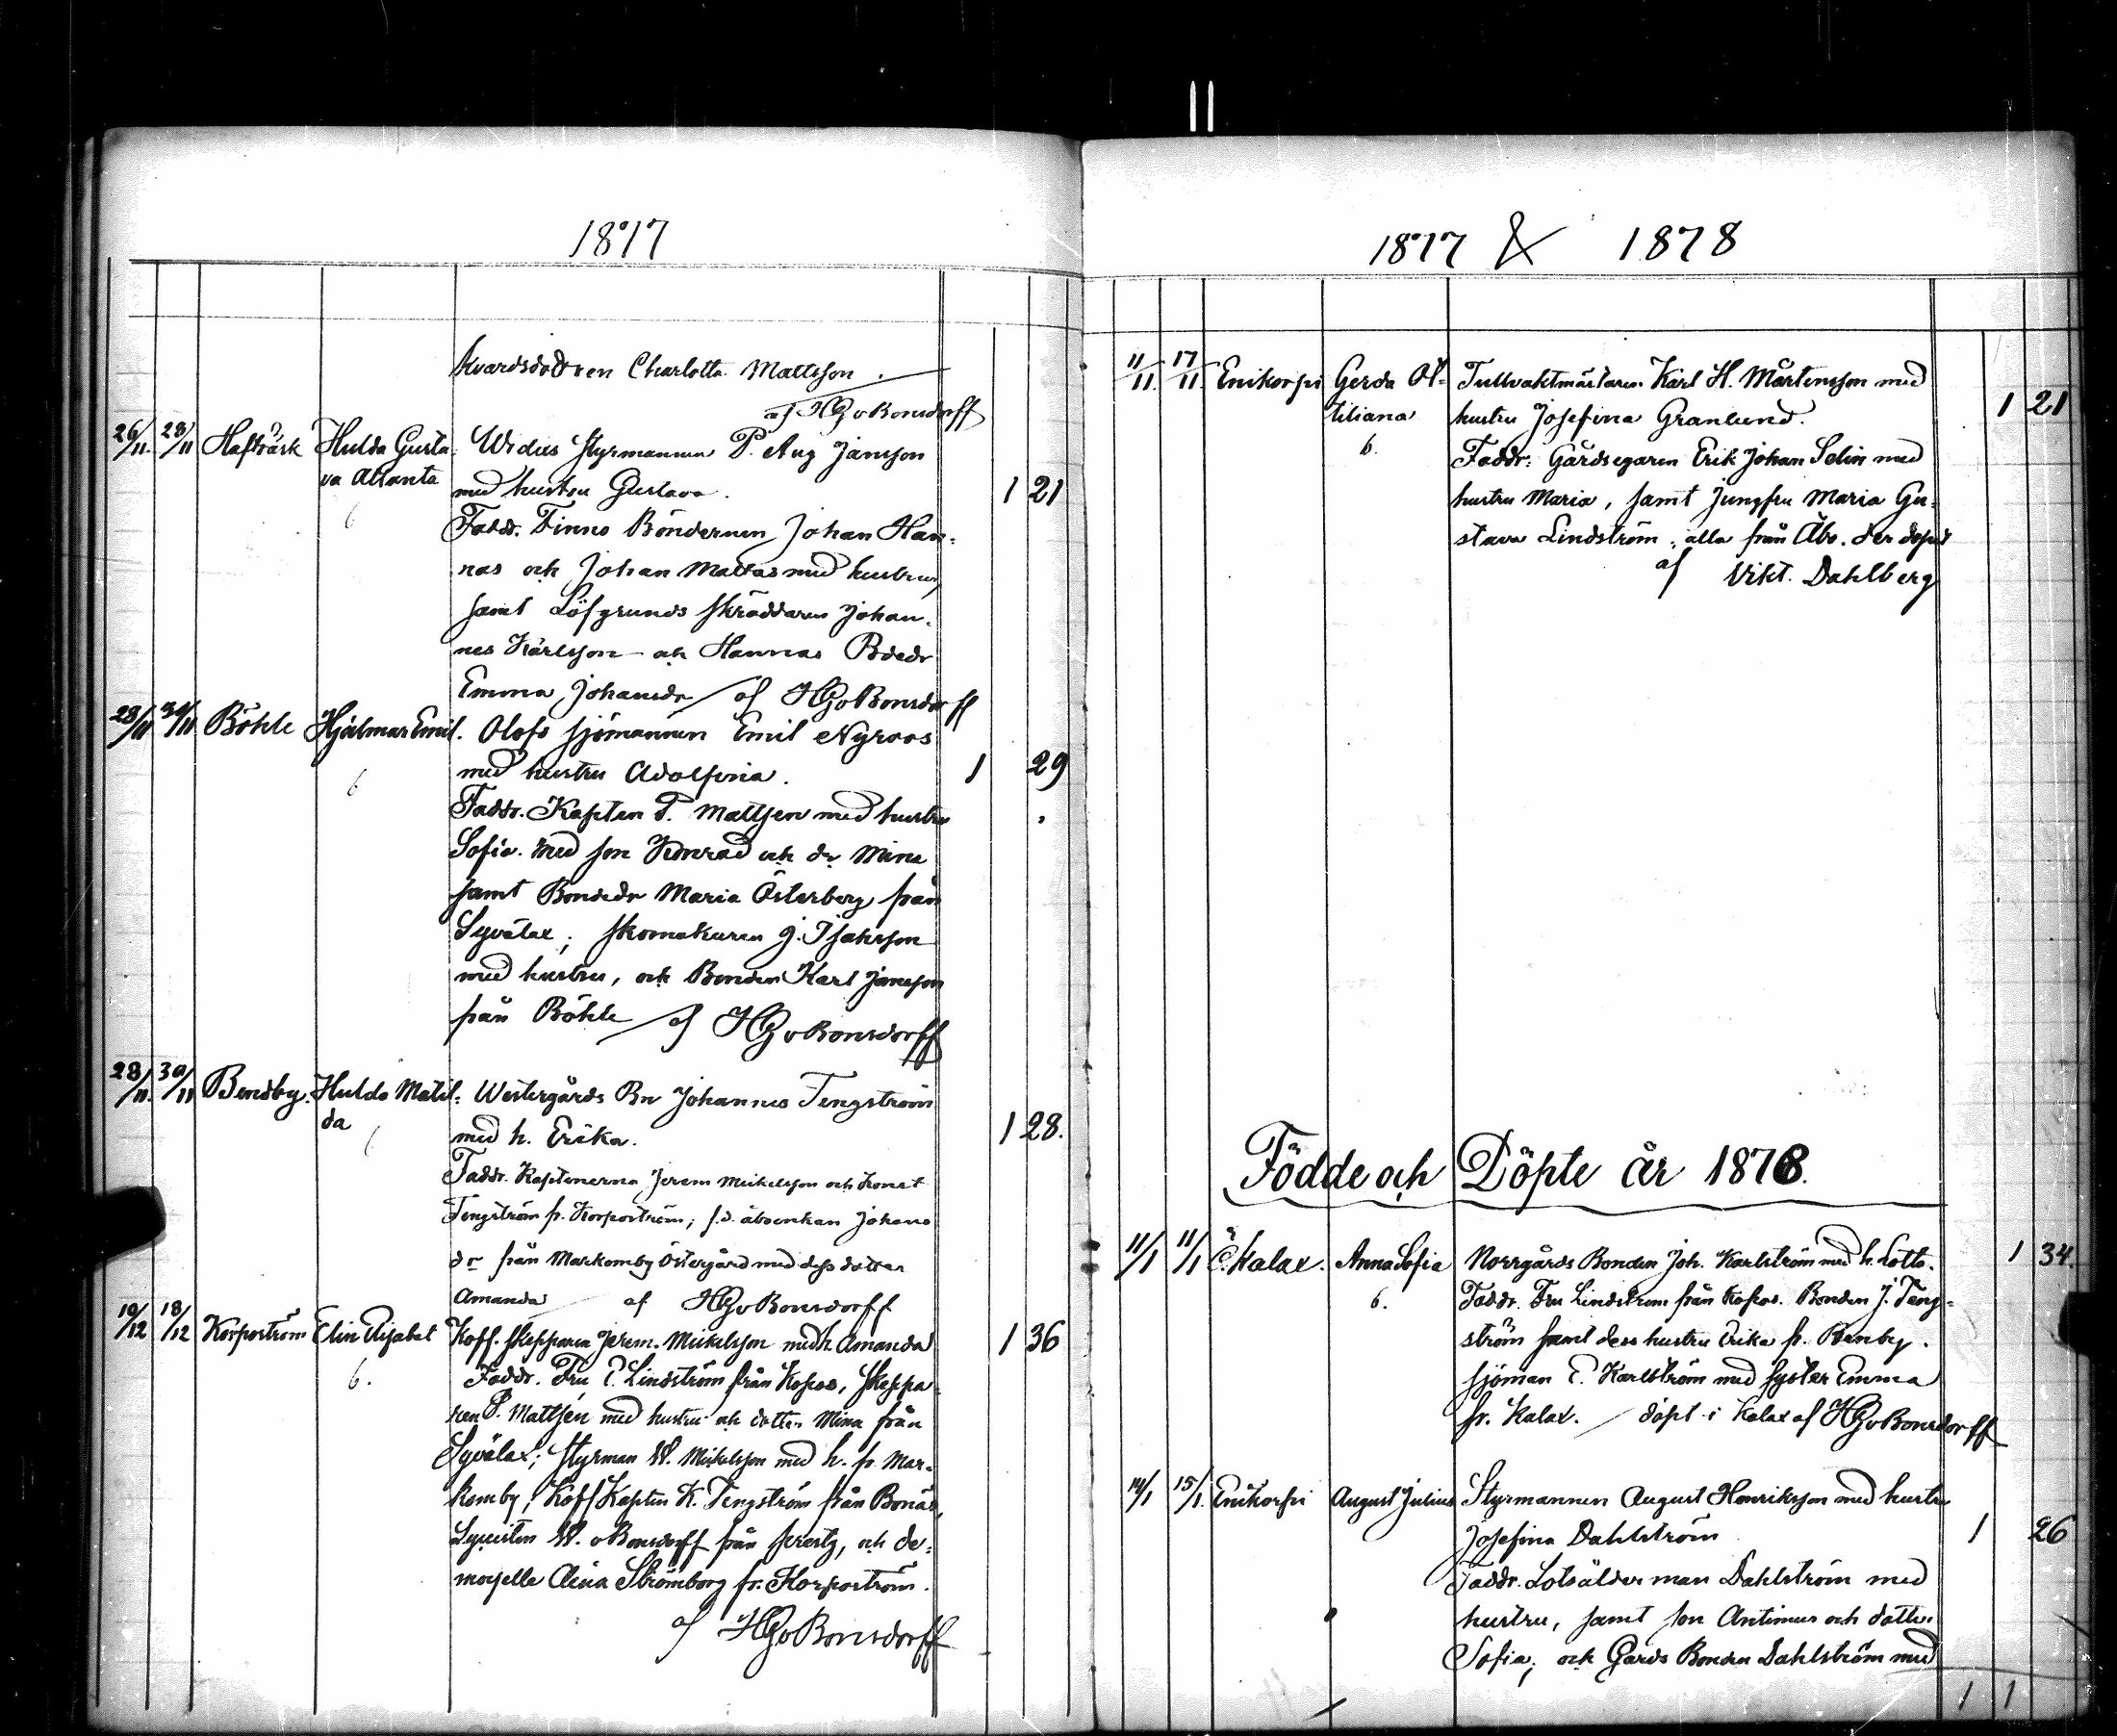 1877
Charlotta Mattsson.
af HGvBonsdorff
26/11. 28/11 Hafträsk Hulda Gusta- Widus Styrmannen P. Aug Jansson
va Atlanta med hustru Gustava. 1 21
6 Faddr. Finno Bönderna Johan Han-
nas och Johan Mattas med hustrur,
samt Löfgrunds skräddaren Johan-
nes Karlsson och Hannas Bdedr
Emma Johansdr af HGvBonsdorff
28/11 30/11 Böhle Hjalmar Emil. Olofs sjömannen Emil Nyroos
6 med hustru Adolfina. 1 29
Faddr. Kapten P. Mattsen med hustru
Sofia. med son Konrad och dr Mina
samt Bondedr Maria Österberg från
Syvälax; skomakaren J. Isaksson
med hustru, och Bonden Karl Jansson
från Böhle af HGvBonsdorff
28/11. 30/11 Bendby. Hulda Matil- Westergårds Bn Johannes Tengström
da med h. Erika. 1 28.
6 Faddr. Kaptenerna Jerem Mickelsson och Konst
Tengström fr. Korpoström; f.d. åboenkan Johans
dr från Markomby Östergård med dess dotter
Amanda af HGvBonsdorff
10/12 18/12 Korpoström Elin Elisabet Koff. skepparen Jerem. Mickelsson med h. Amanda 1 36
6. Faddr. Fru E. Lindström från Kopos, Skeppa-
ren P. Mattsén med hustru och dotter Mina från
Syvälax; Styrman W. Mickelsson med h. fr. Mar-
komby; Koff Kapten K. Tengström från Bonäs,
Lyceisten W. v Bonsdorff från prestg, och de-
moiselle Aina Strömborg fr. Korpoström.
af HGvBonsdorff
1877 & 1878
11/11. 17/11. Enikorpi Gerda Ot- Tullvaktmästaren Karl H. Mårtensson med
tiliana hustru Josefina Granlund. 1 21
6. Faddr: Gårdsegaren Erik Johan Selin med
hustru Maria, samt Jungfru Maria Gu-
stava Lindström, alla från Åbo. der döpt
af Vikt. Dahlberg
Födde och Döpte år 1878.
11/1 11/1 Ö. Kalax. Anna Sofia Norrgårds Bonden Joh. Karlström med h. Lotta. 1 34.
6. Faddr. Fru Lindström från Kopos. Bonden J. Teng-
ström samt dess hustru Erika fr. Benby.
sjöman E. Karlström med syster Emma
fr. Kalax. döpt i Kalax af HGvBonsdorff
14/1 15/1. Enikorpi August Julius Styrmannen August Henriksson med hustru
Josefina Dahlström 1 26
Faddr. Lotsålderman Dahlström med
hustru, samt son Antimus och dotter
Sofia; och Gårds Bonden Dahlström med
1 1